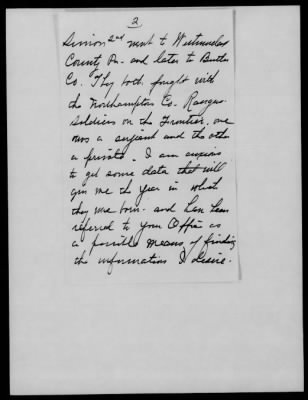 2
Simion 2nd went to Westmoreland
County Pa. and later to Butler
Co. They both fought with
the Northampton Co. Rangers
Soldiers on the Frontier, one
was a sergeant and the other
a private. I am anxious
to get some data that will
give me the year in which
they were born. and have been
referred to your Office as
a possible means of finding
the information I desire.